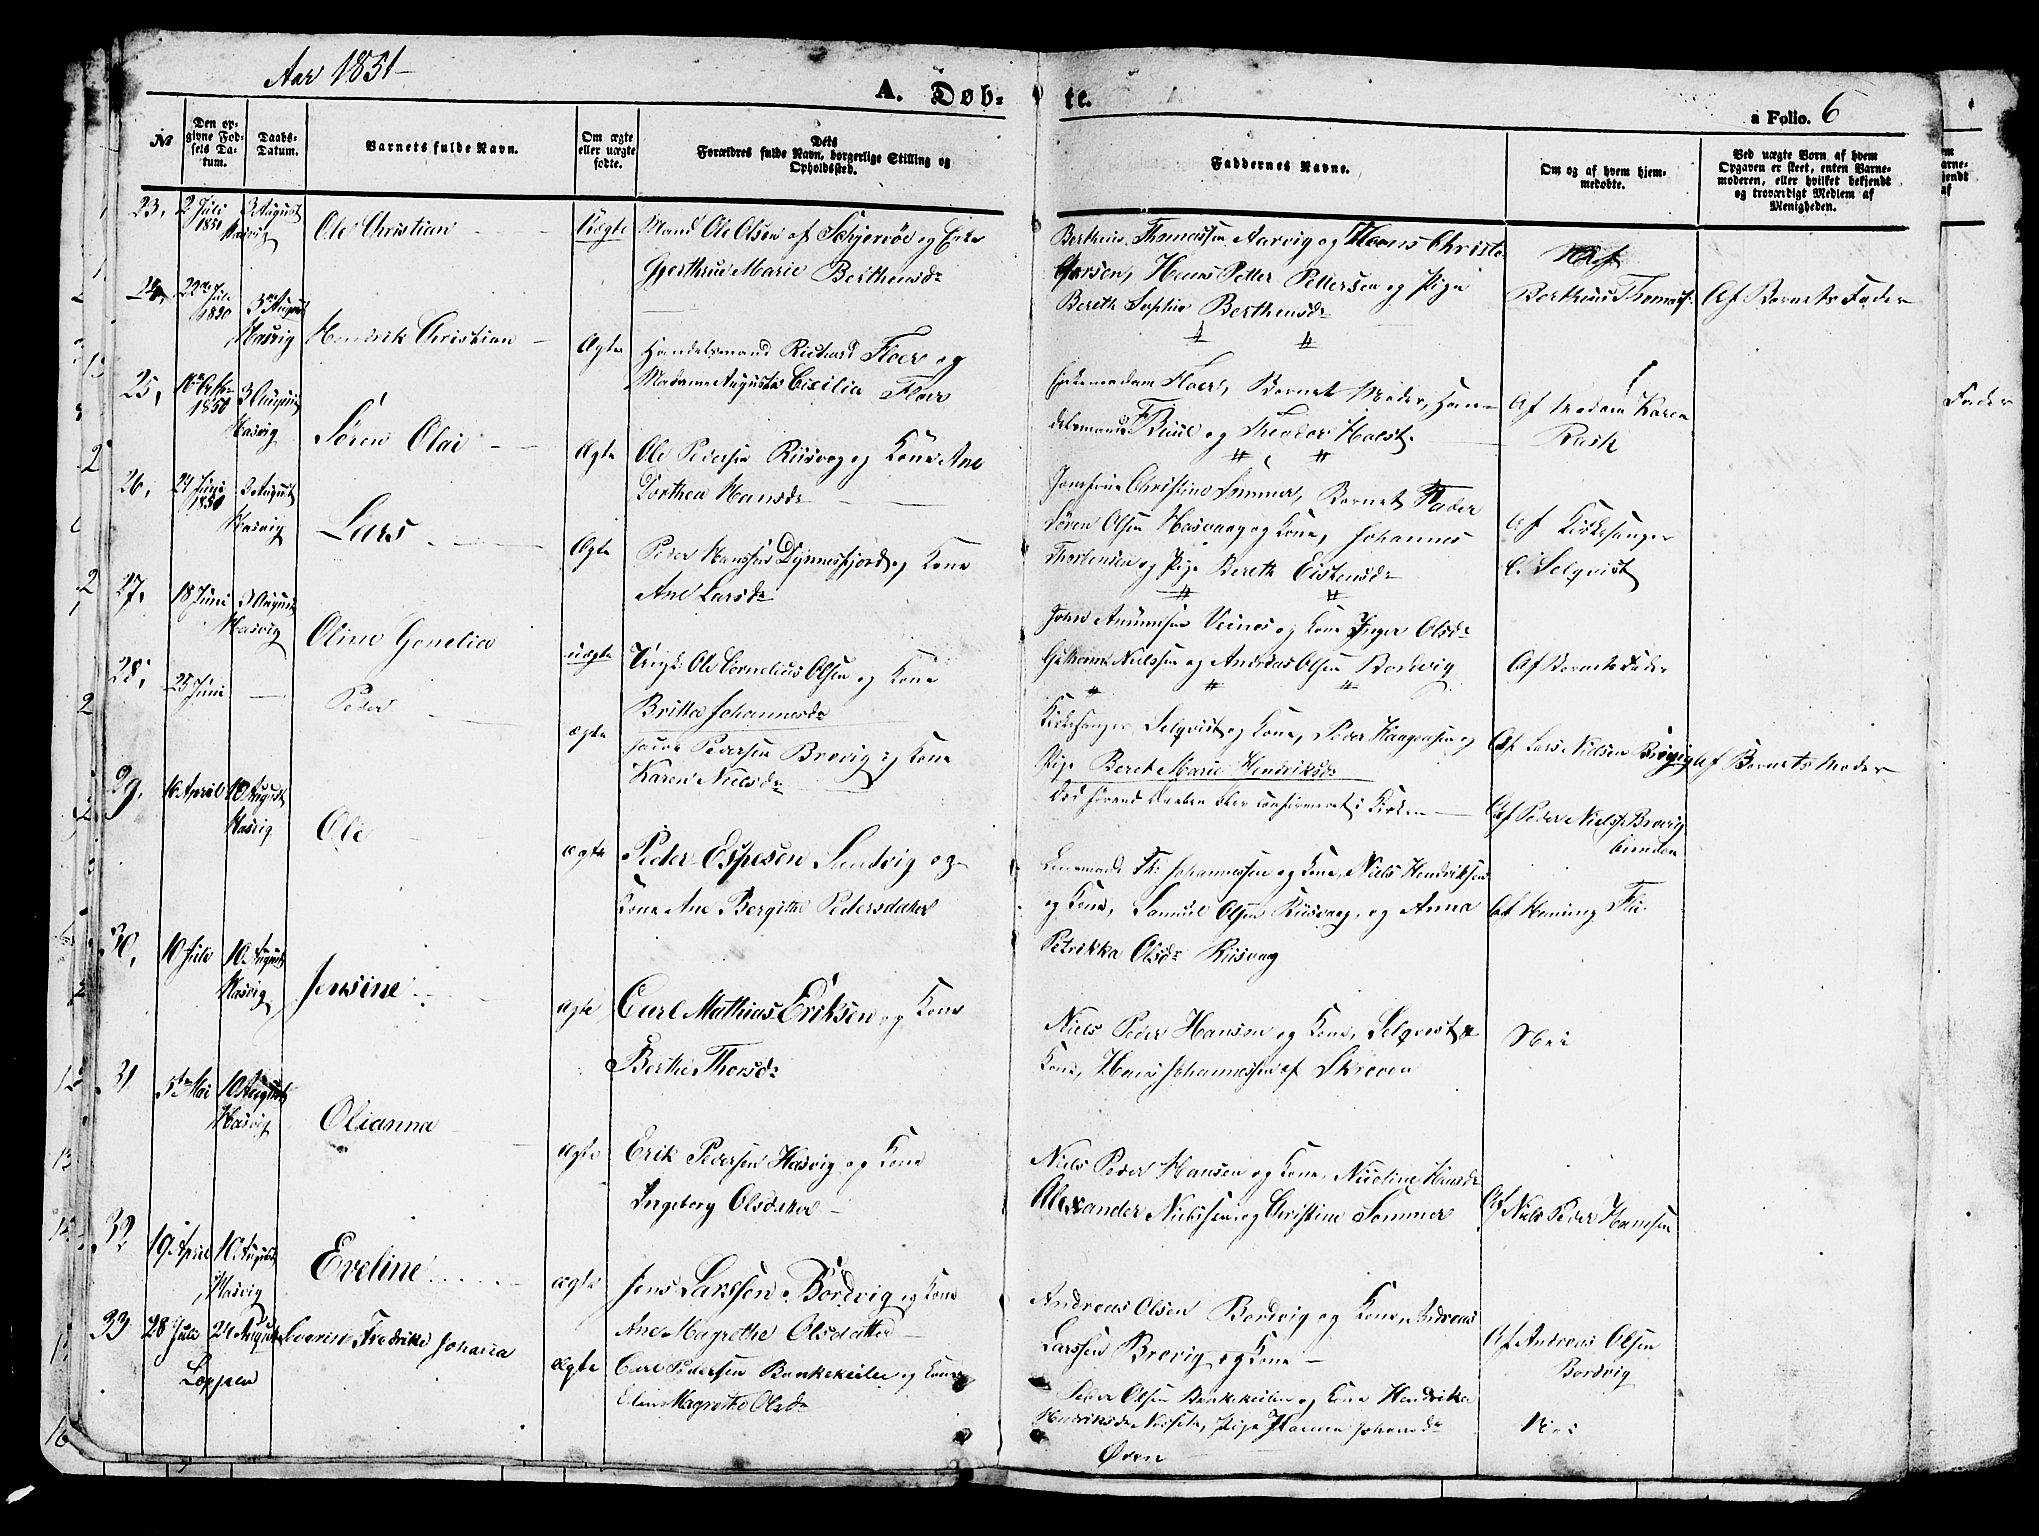 Aar 1851
A. Døb-
te.
a Folio. 6
No
Den op-
givne Fød-
sels Da-
tum.
Daabs-
Datum.
Barnets fulde Navn.
Om ægte
eller uægte
fødte.
Dets
Forældres fulde Navn, borgerlige Stilling og
Opholdssted.
Faddernes Navne.
Om og af hvem hjem-
medøbte.
Ved uægte Børn af hvem
Opgaven er skeet, enten Barne-
moderen, eller hvilket bekjendt
og troværdigt Medlem af
Menigheden.
23. 2 Juli
1851
3 August
Hasvig
Ole Christian
Uægte
Mand Ole Olsen af Schjervøe og Enke
Gjerthrue Marie Berthensdr
Bertheus Thomassen Aarvig og Hans Christo
fersen, Hans Petter Pettersen og Pige
Bereth Sophie Berthensdr
Bertheus Thomass.
Af Barnets Fader
24. 22 Juli
1850
3 August
Hasvig
Hendrik Christian
Ægte
Handelsmand Richard Floer og
Madame Augusta Cicilia Floer
Enkemadam Floer, Barnet Moder, Han
delsmand F Buul og Theodor Holst.
Af Madam Karen
Rask
25,
1850
3 August
Hasvig
Søren Olai
Ægte
Ole Pedersen Riisvog og Kone Ane
Dorthea Hansdr
Jomfrue Christine Sommer, Barnet Fader
Søren Olsen Hasvaag og Kone, Johannes
Thorsensen og Pige Bereth Eistensdr
Af Kirkesanger
C. Selqvist
26, 21 Juni
1850
3 August
Hasvig
Lars
Ægte
Peder Hanssen Dynnesfjord og Kone
Ane Larsdr
John Amunsen Veines og Kone Inger Olsdr
Nielssen og Andreas Olsen Bordvig
Af Barnets Fader
27. 18 Juni 3 August
Hasvig
Oline Gonelia
uægte
Ole Cornelius Olsen og Kone
Britta Johannesdr
Kirkesanger Selqvist og Kone, Peder Haagensen og
Pige Beret Marie Hendriksdr
Af Lars Nielsen Brøvig
Af Barnets Moder
28, 25 Juni
Peder
ægte
Jacob Pedersen Brøvig og Kone
Karen Nielsdr
Død førend Daaben blev confirmeret i Kirken
Af Peder Niels. Brøvig
29. 16 April 10 August
Hasvig
Ole
ægte
Peder Espesen Sandvig og
Kone Ane Bergithe Pedersdatter
Lensmand Th: Johannessen og Kone, Niels Hendriksen
og Kone, Samuel Olsen Riisvaag, og Anna
Petrikka Olsdr Riisvaag
Af Henning
30, 10 Juli 10 August
Hasvig
Jensine
ægte
Carl Mathias Eriksen og Kone
Berthe Thorsdr
Niels Peder Hansen og Kone, Selqvist &
Kone, Hans Johannessen af Skreven
Nei
31 5te Mai 10 August
Hasvig
Olianna
ægte
Erik Pedersen Hasvig og Kone
Ingeborg Olsdatter
Niels Peder Hansen og Kone, Nicoline Hansdr
Alexander Nielssen og Christine Sommer
Af Niels Peder Hansen
32 19 April 10 August
Hasvig
Eveline
ægte
Jens Larssen Bordvig og Kone
Ane Magrethe Olsdatter
Andreas Olsen Bordvig og Kone, Andreas
Larssen Brøvig og Kone
Af Andreas Olsen
Bordvig
33 28 Juli 24 August
Loppen
Fredrikke Johanna
ægte
Carl Pedersen Bankekeilen og Kone
Eline Magrethe Olsdr
Peder Olsen Bankekeilen og Kone Hendrikke
Hendriksdr, Pige Hanna Johansdr
Øxen
Nei
Fader